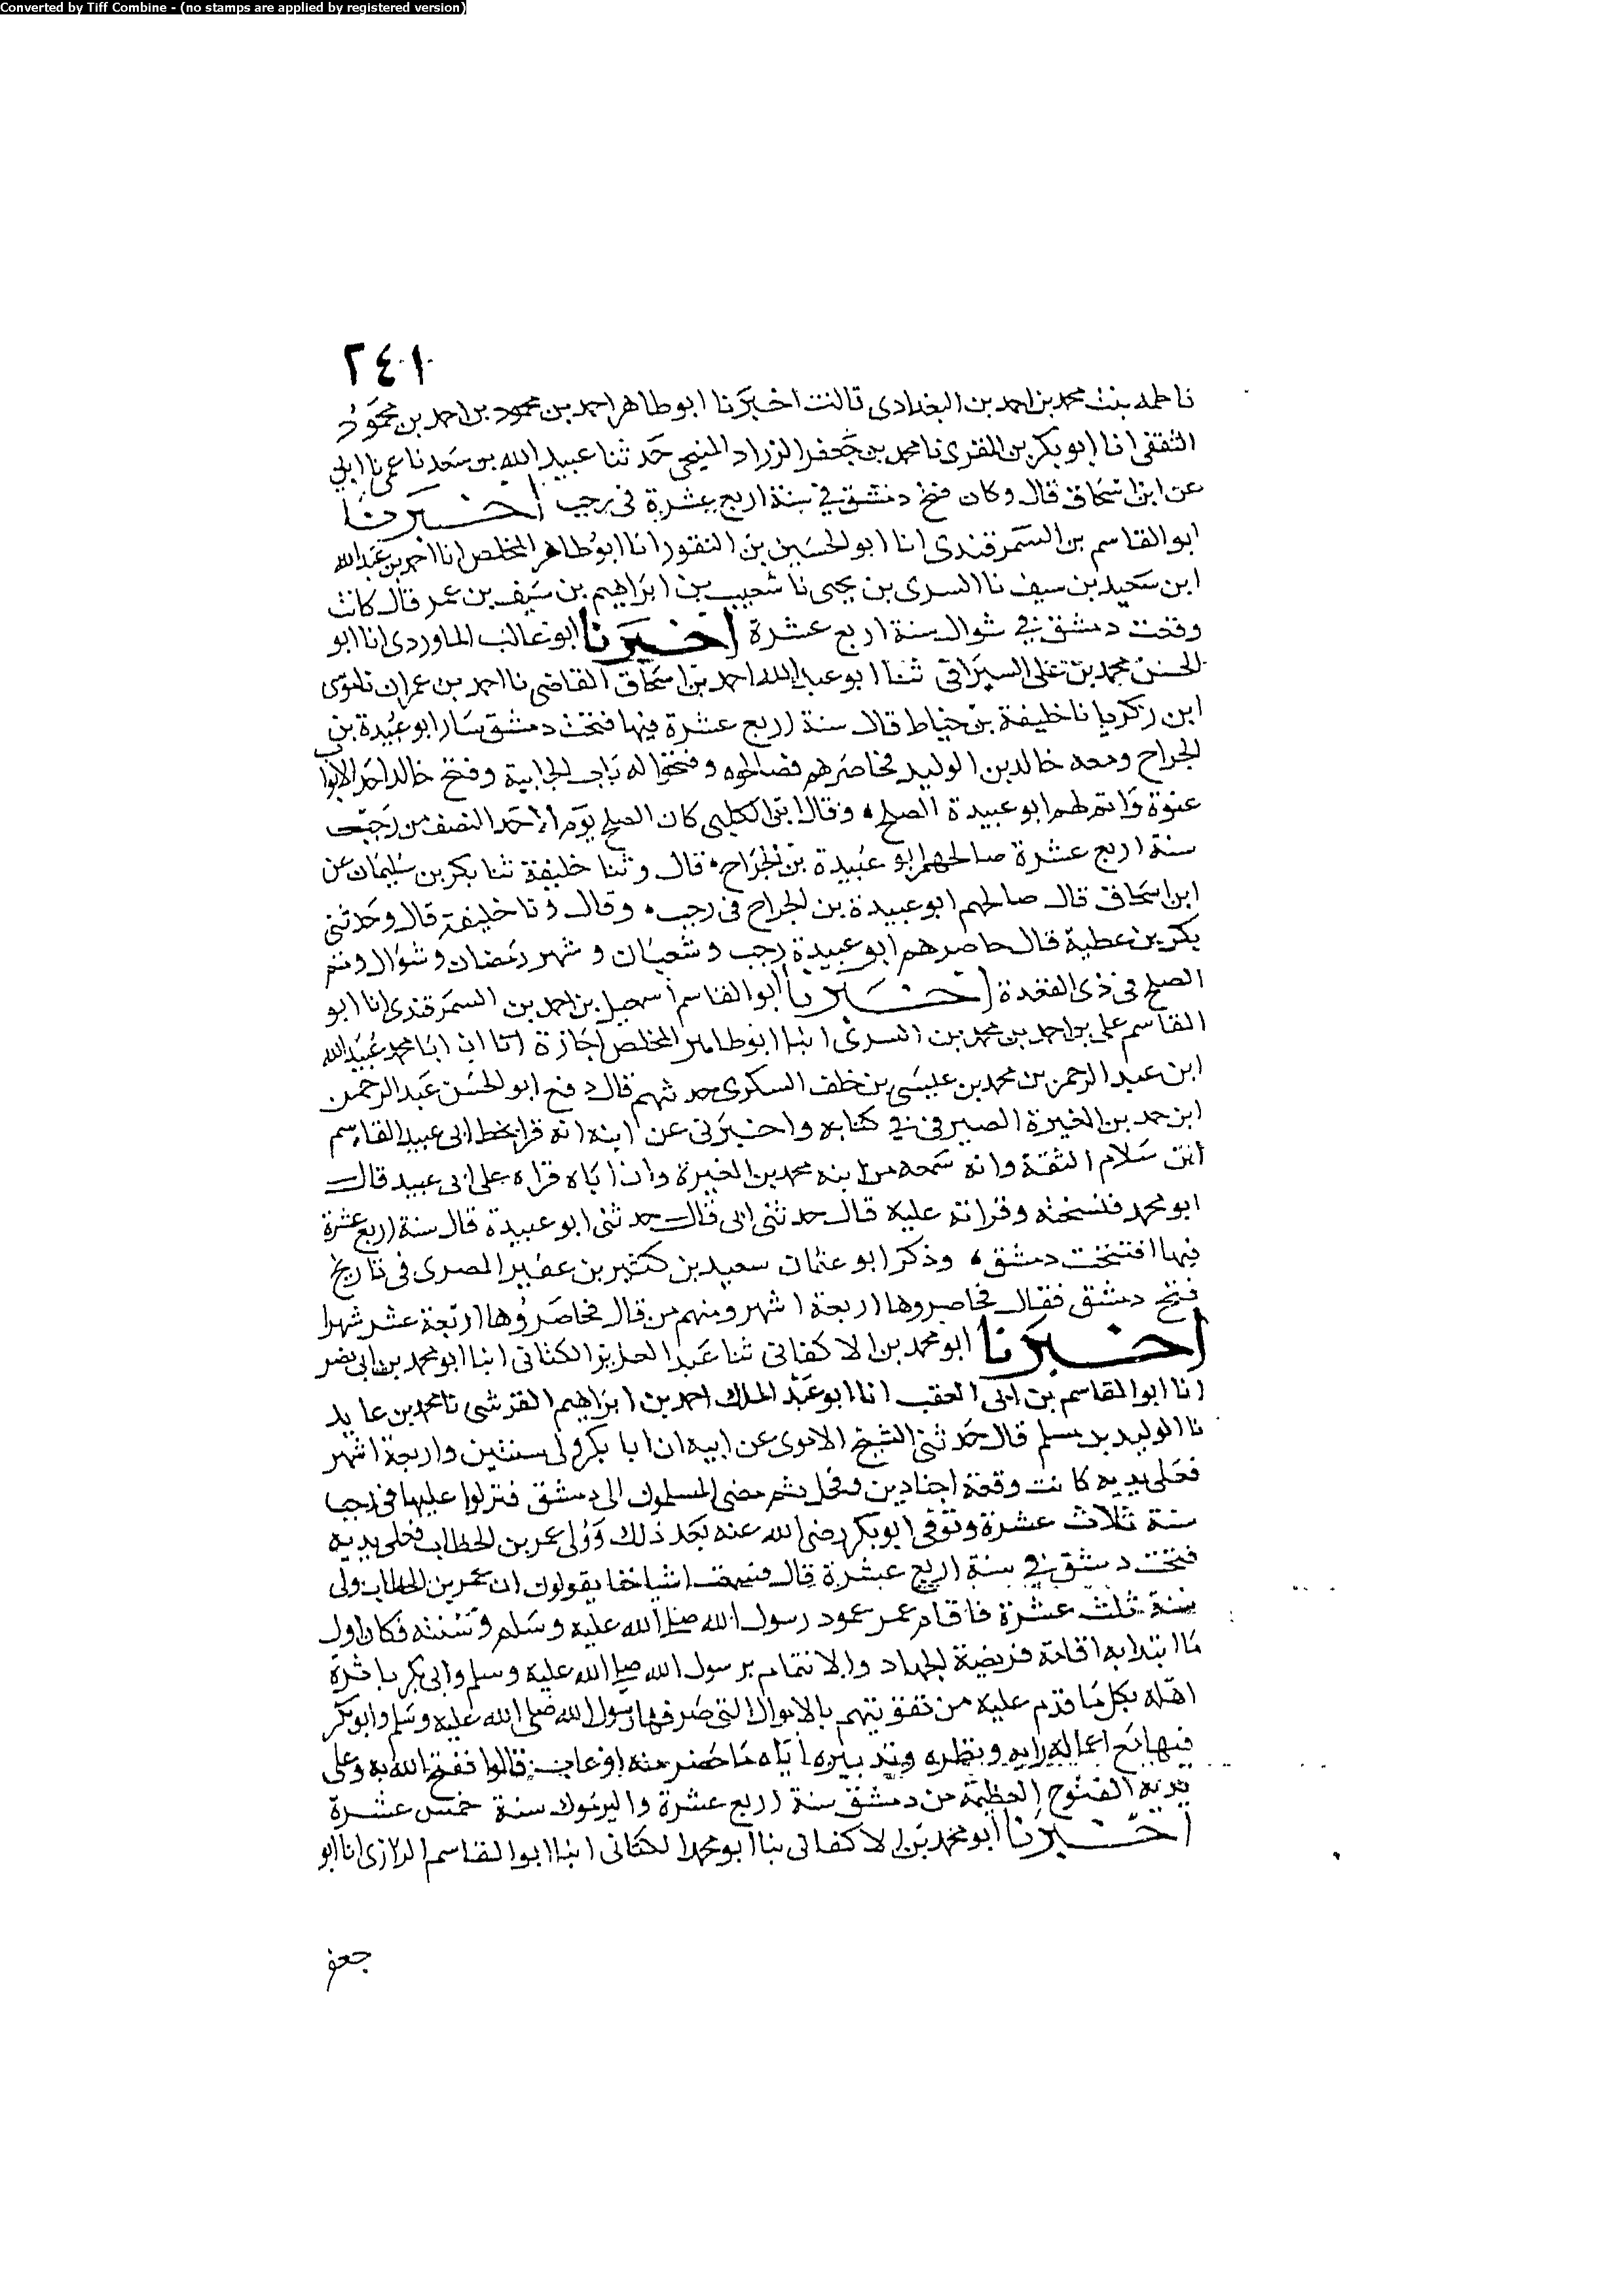 Converted by Tiff Combine - (no stamps are applied by registered version)
٢٤١
فاطمه بنت محمد بن احمد بن البغدادى قالت اخبرنا ابو طاهر احمد بن محمود بن احمد بن محمود
الثقفى انا ابو بكر بن المقرى نا محمد بن جعفر الزراد المنبجى حدثنا عبيد الله بن سعد نا عمى نا ابى
عن ابن اسحاق قال وكان فتح دمشق في سنة اربع عشرة فى رجب اخبرنا
ابو القاسم بن السمرقندى انا ابو الحسين بن النقور انا ابو طاهر المخلص انا احمد بن عبد الله
ابن سعيد بن سيف نا السرى بن يحيى نا شعيب بن ابراهيم بن سيف بن عمر قال كانت
وفتحت دمشق في شوال سنة اربع عشرة اخبرنا ابو غالب الماوردى انا ابو
الحسن محمد بن على السيرافى ثنا ابو عبد الله احمد بن اسحاق القاضى نا احمد بن عمران نا موسى
ابن زكريا نا خليفة بن خياط قال سنة اربع عشرة فيها فتحت دمشق سار ابو عبيدة بن
الجراح ومعه خالد بن الوليد فحاصرهم فصالحوه وفتحوا له باب الجابية وفتح خالد احد الابواب
عنوة واتم لهم ابو عبيدة الصلح وقال ابن الكلبى كان الصلح يوم الاحد النصف من رجب
سنة اربع عشرة صالحهم ابو عبيدة بن الجراح قال وثنا خليفة ثنا بكر بن سليمان عن
ابن اسحاق قال صالحهم ابو عبيدة بن الجراح فى رجب وقال ونا خليفة قال وحدثنى
بكر بن عطية قال حاصرهم ابو عبيدة رجب وشعبان وشهر رمضان وشوال وتم
الصلح فى ذى القعدة اخبرنا ابو القاسم اسمعيل بن احمد بن السمرقندى انا ابو
القاسم على بن احمد بن محمد بن السرى انبا ابو طاهر المخلص اجازة انا ان ابا محمد عبيد الله
ابن عبد الرحمن بن محمد بن عيسى بن خلف السكرى حدثهم قال دفع ابو الحسن عبد الرحمن
ابن حمد بن المغيرة الصيرفى في كتابه واخبرنى عن ابنه انه قرا بخط ابى عبيد القاسم
ابن سلام الثقة وانه سمعه من ابنه محمد بن المغيرة وان اباه قراه على ابى عبيد قال
ابو محمد فنسخته وقراته عليه قال حدثنى ابى قال حدثنى ابو عبيدة قال سنة اربع عشرة
فيها افتتحت دمشق وذكر ابو عثمان سعيد بن كثير بن عفير المصرى فى تاريخ
فتح دمشق فقال فحاصروها اربعة اشهر ومنهم من قال فحاصروها اربعة عشر شهرا
اخبرنا ابو محمد بن الاكفانى ثنا عبد العزيز الكتانى انبا ابو محمد بن ابى نصر
انا ابو القاسم بن ابى العقب انا ابو عبد الملك احمد بن ابراهيم القرشى نا محمد بن عايد
نا الوليد بن مسلم قال حدثنى الشيخ الاموى عن ابيه ان ابا بكر ولى سنتين واربعة اشهر
فعلى يديه كانت وقعة اجنادين وفحل ثم مضى المسلمون الى دمشق فنزلوا عليها فى رجب
سنة ثلاث عشرة وتوفى ابو بكر رضى الله عنه بعد ذلك وولى عمر بن الخطاب فعلى يديه
فتحت دمشق في سنة اربع عشرة قال فسمعت اشياخنا يقولون ان عمر بن الخطاب ولى
سنة ثلث عشرة فاقام عمر عمود رسول الله صلى الله عليه وسلم وسنته فكان اول
ما ابتدا به اقامة فريضة الجهاد والائتمام برسول الله صلى الله عليه وسلم وابى بكر
اهله بكل ما قدم عليه من تقويتهم بالاموال التى صرفها رسول الله صلى الله عليه وسلم وابو بكر
فيها مع اعماله رايه وبنظره وتدبيره اياه ما حضر منه او غاب قالوا ففتح الله به وعلى
يديه الفتوح العظيمة من دمشق سنة اربع عشرة واليرموك سنة خمس عشرة
اخبرنا ابو محمد بن الاكفانى نبا ابو محمد الكتانى انبا ابو القاسم الرازى انا ابو
جعفر